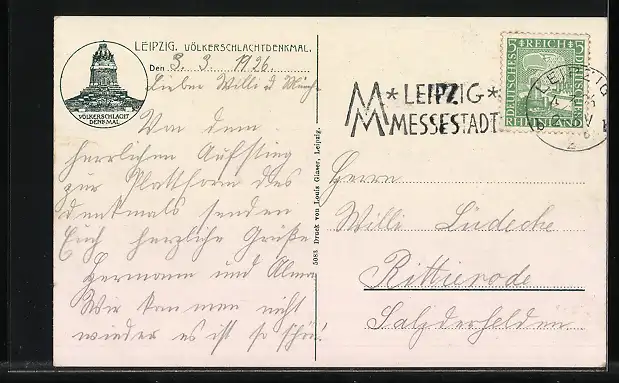 LEIPZIG. VÖLKERSCHLACHTDENKMAL.
Den 3. 3. 1926.
Lieber Willi u
Von dem
herrlichen Aufstieg
zur Plattform des
Denkmals senden
Euch herzliche Grüße
Hermann und Alma
Wir kommen nicht
wieder es ist so schön!
VÖLKERSCHLACHT
DENKMAL
5083 Druck von Louis Glaser, Leipzig.
M * LEIPZIG *
M MESSESTADT
5 REICH 5
DEUTSCHES
RHEINLAND
LEIPZIG
Herrn
Willi Lüdecke
Rittierode
Salzderhelden